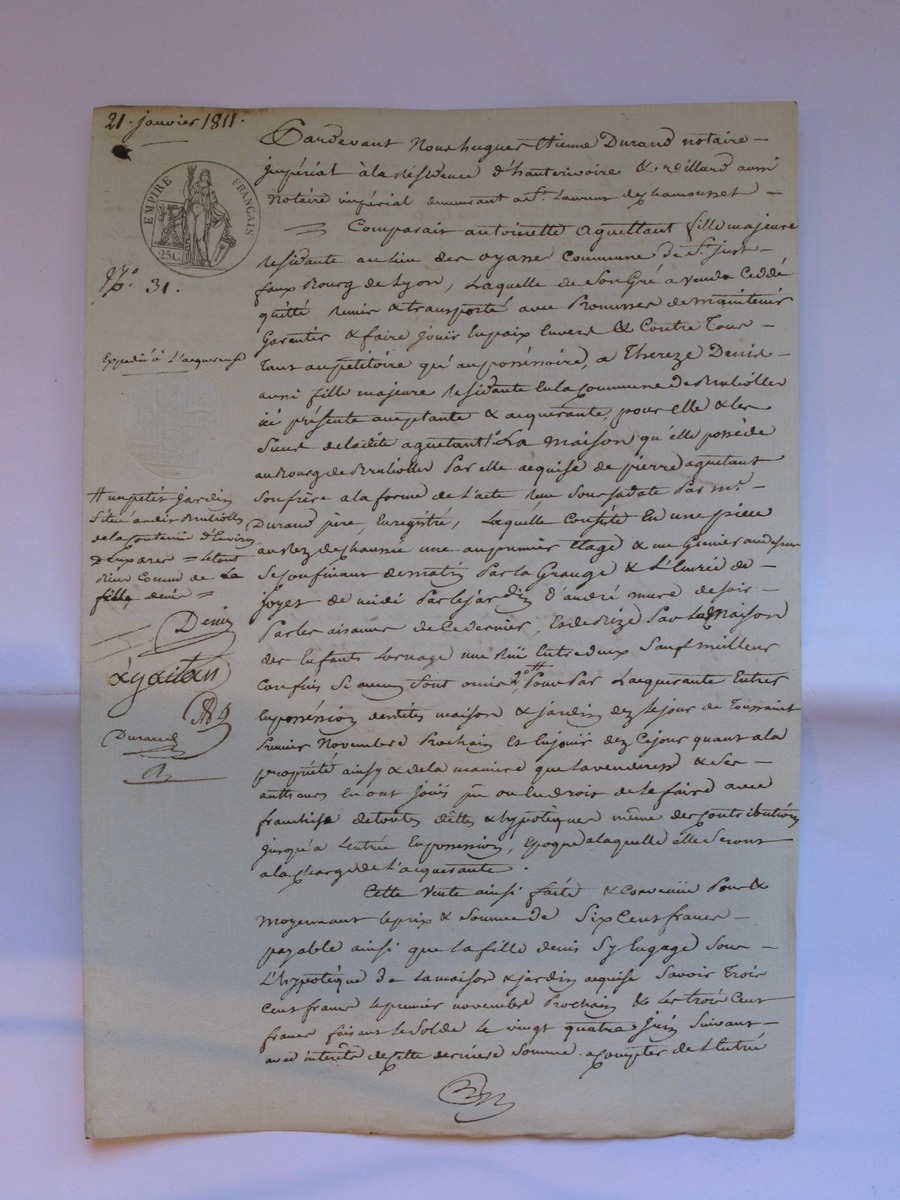 21. janvier 1811.
EMPIRE FRANÇAIS
25C
N.° 31.
Expedié à L'acquereuse
# un petit jardin
situé audit Brulioles
de la Contenue d'Environ
deux ares = le tout
Connu de La
fille denis =
Denis
agaitan
Durand
Pardevant Nous hugues Etienne Durand notaire
impérial à la résidence d'hauterivoire & reillard aussi
Notaire impérial demeurant a St. Laurent de Chamousset
= Comparait antoinette aguettant fille majeure
residante au lieu des oyasse Commune de St. just
faux Bourg de Lyon, Laquelle de Son Gré a vendu Ceddé
quitté remis & transporté avec Promesses de maintenir
Garantir & faire jouir En paix Envers & Contre Tous
Tant au petitoire qu'au possessoire, a Thereze Denis
aussi fille majeure residante En la Commune de Brulioller
ici présente acceptante & acquerante, pour elle & les
Siens de ladite aguetant La maison qu'elle possède
au Bourg de Brulioller Par elle acquise de pierre aguetant
Son frère a la forme de L'acte reçu Sous sa date Par M.e
Durand père, Enregistré, Laquelle Consiste En une pièce
au rez de chaussée une au premier Etage & un Grenier au dessus
Se Confinant de matin Par la Grange & L'Curie de
joyet de midi Par le jardin d'andré mure de soir
Par les aisances de Ce dernier, Et de Bize Par La Maison
des Enfants Lornage une Rue Entre deux Sauf meilleurs
Confins Si aucuns Sont omis #, Pour Par L'acquerante Entrer
En possession desdites maison & jardin dez le jour de Toussaint
Premier Novembre Prochain Et En jouir dez Ce jour quant a la
propriété ainsy & de la manière que la venderesse & Ses
autheurs En ont jouis ou Eu droit de le faire avec
franchise de toutes dettes & hypotèques même des Contributions
jusqu'a Lentrée En possession, Epoque a laquelle elles Seront
a la Charge de L'acquerante.
Cette Vente ainsi faite & Convenüe Pour &
Moyennant le prix & Somme de Six Cent francs
payable ainsi que la fille denis S'y Engage Sous
L'hypotèque de La maison & jardin acquise Savoir Trois
Cent francs le premier novembre Prochain & les trois Cent
francs faisant le Solde le vingt quatre juin Suivant
avec interêts de Cette derniere Somme a Compter de L'entrée